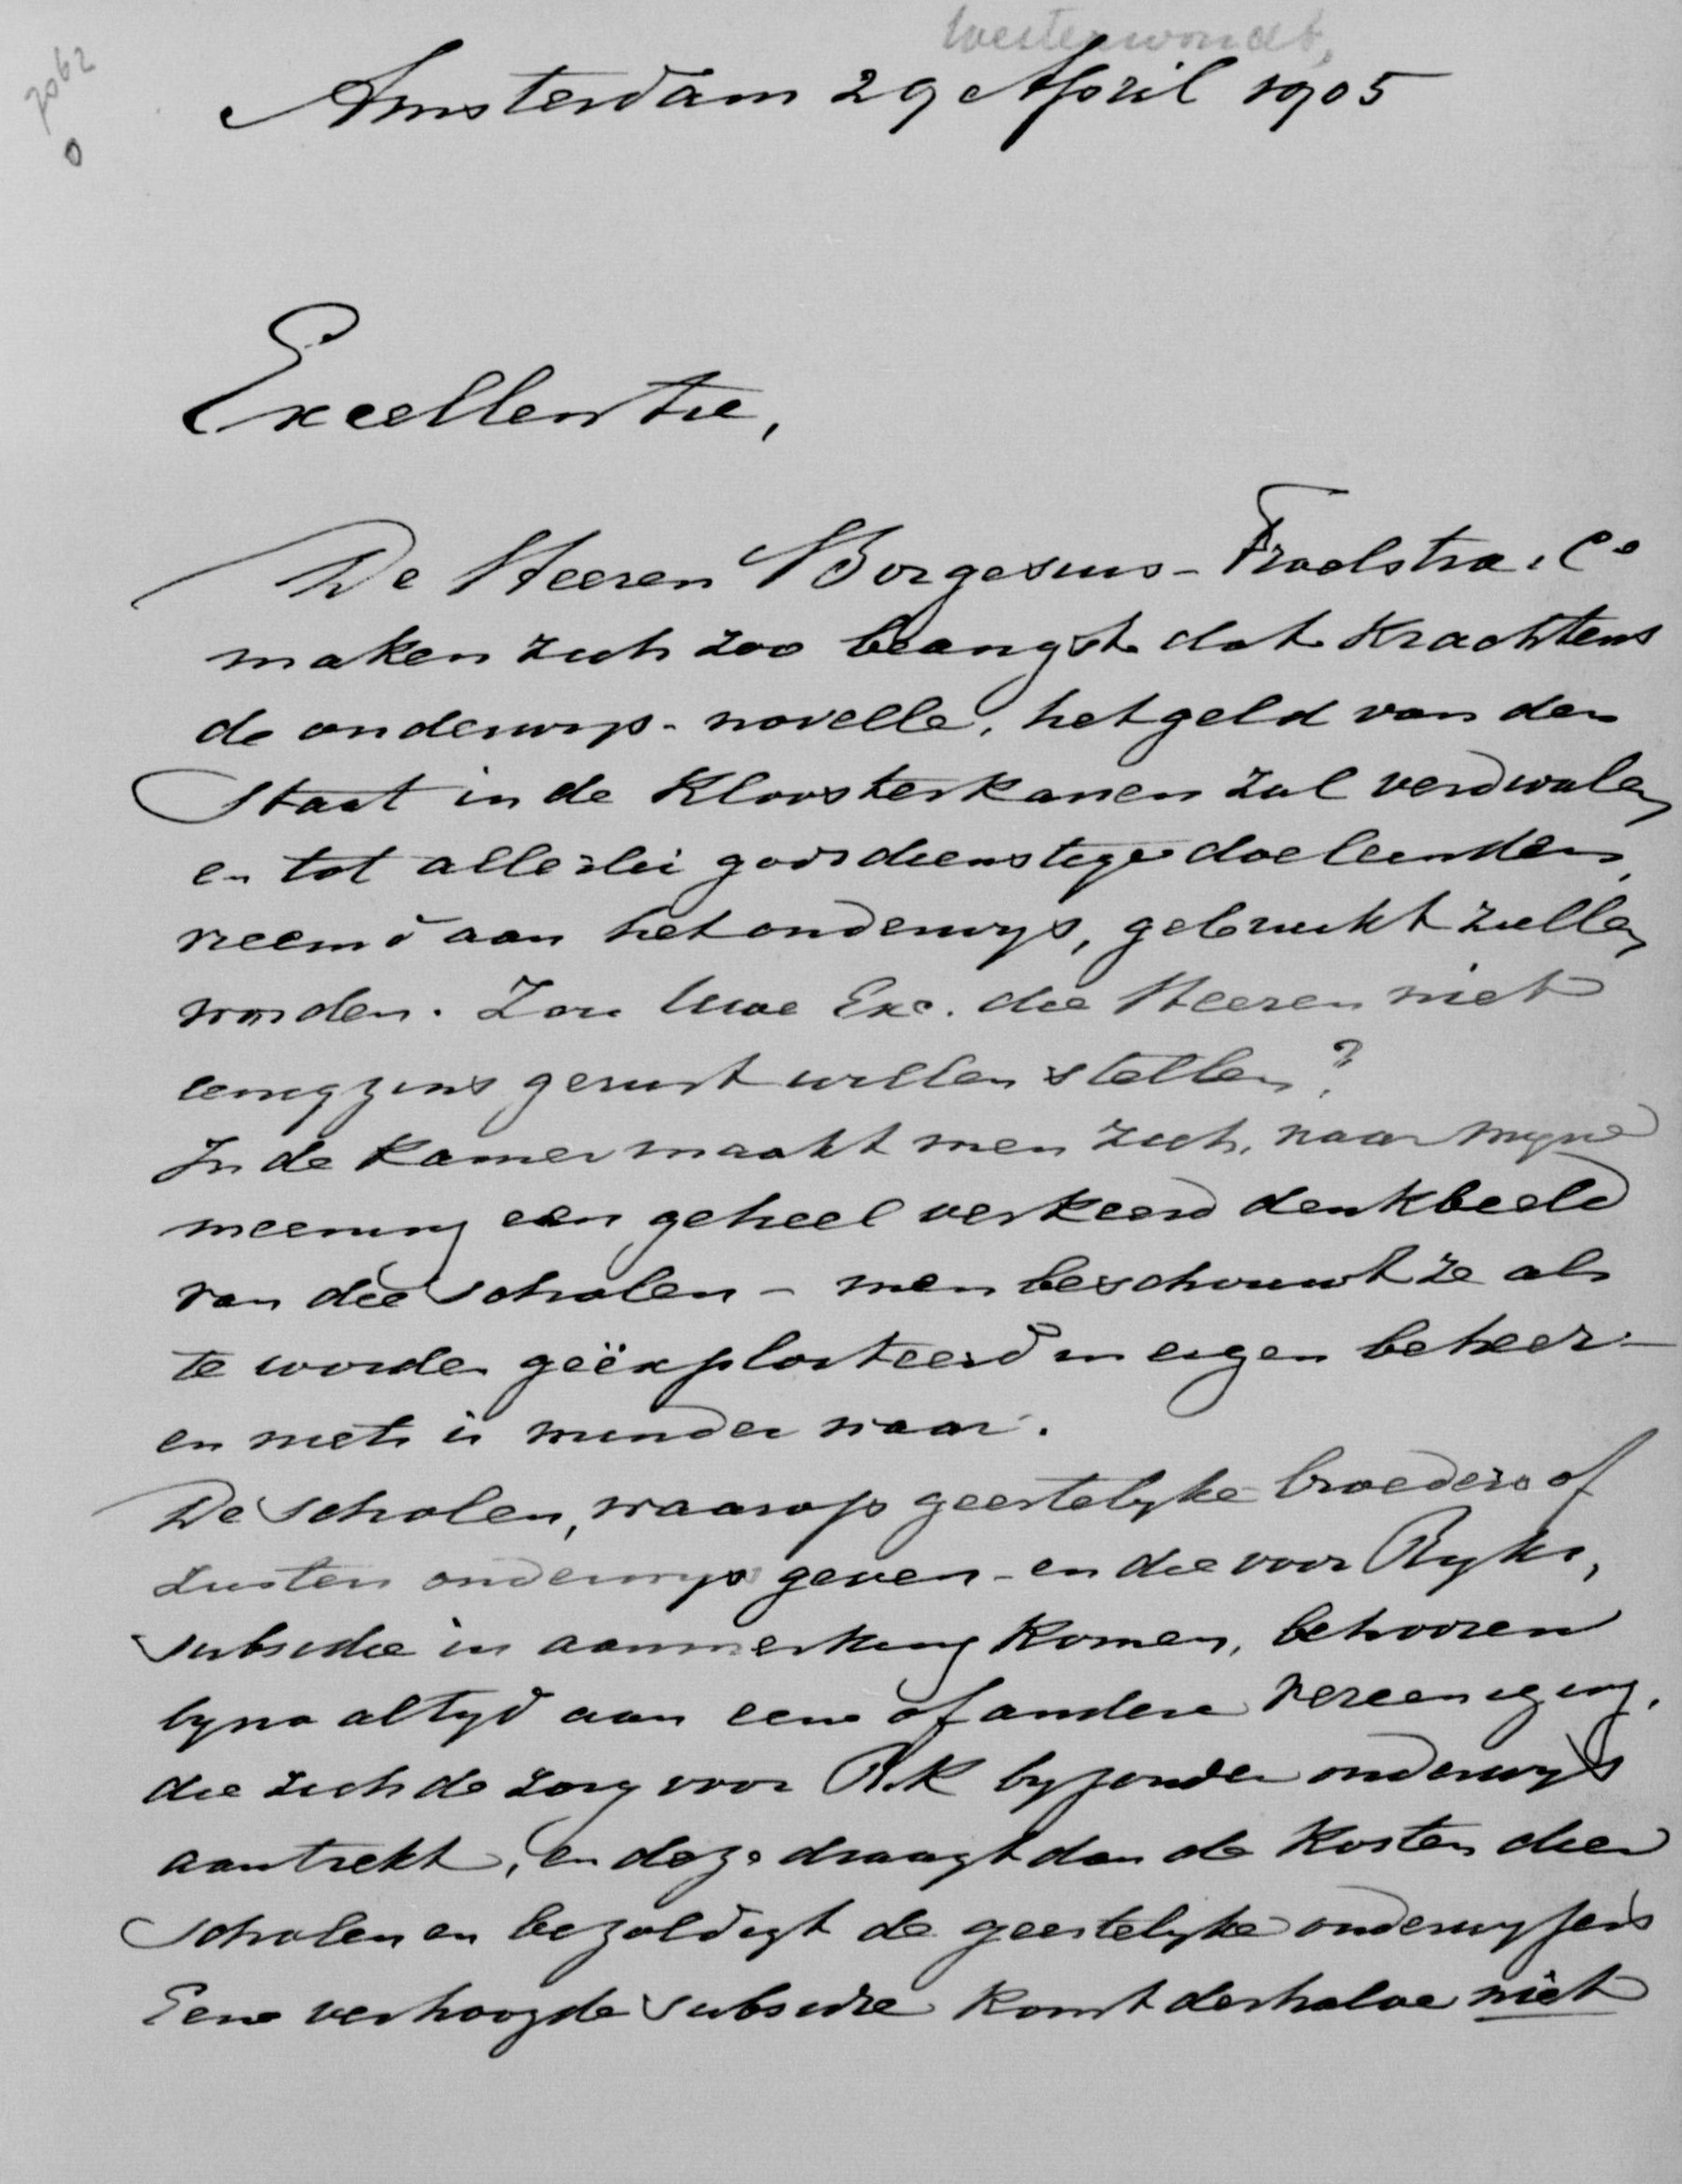 Westerwoudt,
7062
0
Amsterdam 29 April 1905
Excellentie,
De Heeren Borgesius-Troelstra. Co
maken zich zoo beangst dat krachtens
de onderwijs-novelle, het geld van den
Staat in de Kloosterkassen zal verdwalen
en tot allerlei godsdienstige doeleinden,
vreemd aan het onderwijs, gebruikt zullen
worden. Zou Uwe Exc. die Heeren niet
eenigzins gerust willen stellen?
In de Kamer maakt men zich, naar mijne
meening een geheel verkeerd denkbeeld
van die scholen - men beschouwt ze als
te worden geëxploiteerd in eigen beheer -
en niets is minder waar.
De scholen, waarop geestelijke broeders of
zusters onderwijs geven - en die voor Rijks,
subsidie in aanmerking komen, behooren
bijna altijd aan eene of andere vereeniging,
die zich de zorg voor R.K bijzonder onderwijs
aantrekt, en deze draagt dan de kosten dier
scholen en bezoldigt de geestelijke onderwijzers
Eene verhoogde subsidie komt derhalve niet